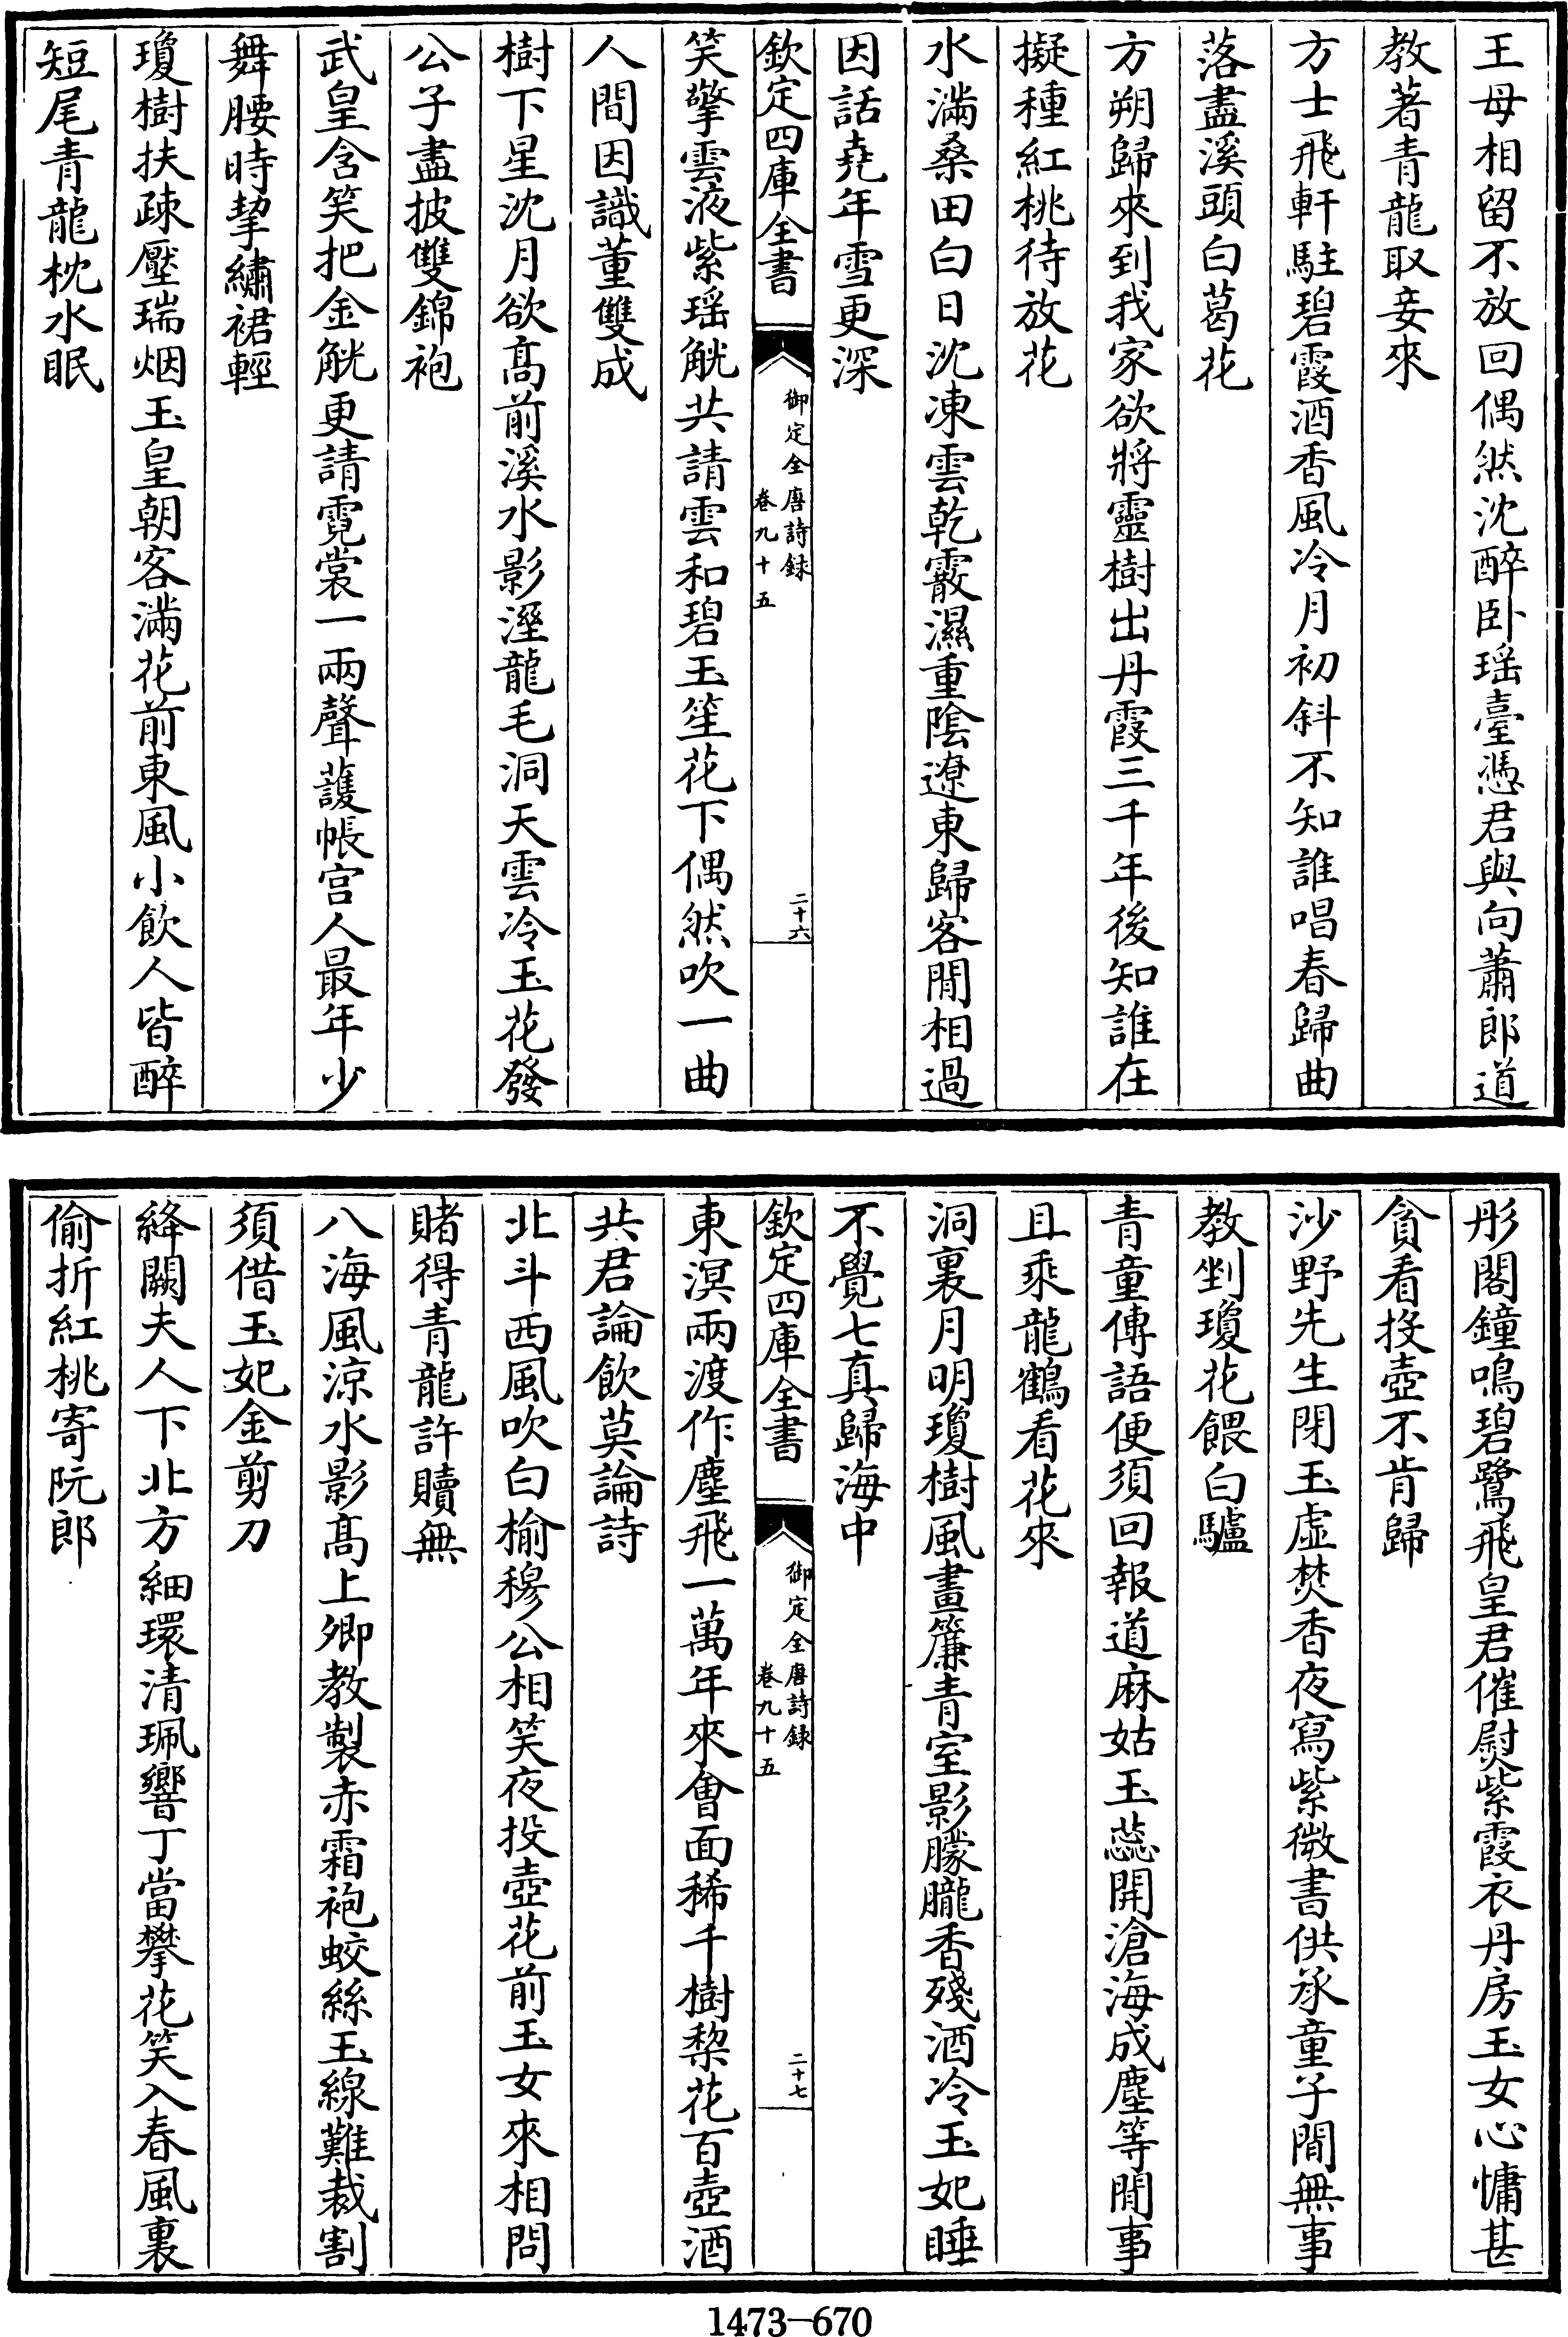 王母相留不放回偶然沈醉卧瑶臺憑君與向蕭郎道
教著青龍取妾來
方士飛軒駐碧霞酒香風冷月初斜不知誰唱春歸曲
落盡溪頭白葛花
方朔歸來到我家欲將靈樹出丹霞三千年後知誰在
擬種紅桃待放花
水滿桑田白日沈凍雲乾霰濕重陰遼東歸客閒相過
因話堯年雪更深
欽定四庫全書
御定全唐詩録
卷九十五
二十六
笑擎雲液紫瑶觥共請雲和碧玉笙花下偶然吹一曲
人間因識董雙成
樹下星沈月欲高前溪水影溼龍毛洞天雲冷玉花發
公子盡披雙錦袍
武皇含笑把金觥更請霓裳一兩聲護帳宫人最年少
舞腰時挈繡裙輕
瓊樹扶疎壓瑞烟玉皇朝客滿花前東風小飲人皆醉
短尾青龍枕水眠
彤閣鐘鳴碧鷺飛皇君催熨紫霞衣丹房玉女心慵甚
貪看投壺不肯歸
沙野先生閉玉虛焚香夜寫紫微書供承童子閒無事
教剉瓊花餵白驢
青童傳語便須回報道麻姑玉蕊開滄海成塵等閒事
且乘龍鶴看花來
洞裏月明瓊樹風畫簾青室影朦朧香殘酒冷玉妃睡
不覺七真歸海中
欽定四庫全書
御定全唐詩録
卷九十五
二十七
東溟兩渡作塵飛一萬年來會面稀千樹棃花百壺酒
共君論飲莫論詩
北斗西風吹白榆穆公相笑夜投壺花前玉女來相問
賭得青龍許贖無
八海風涼水影高上卿教製赤霜袍蛟絲玉線難裁割
須借玉妃金剪刀
絳闕夫人下北方細環清珮響丁當攀花笑入春風裏
偷折紅桃寄阮郎
1473-670